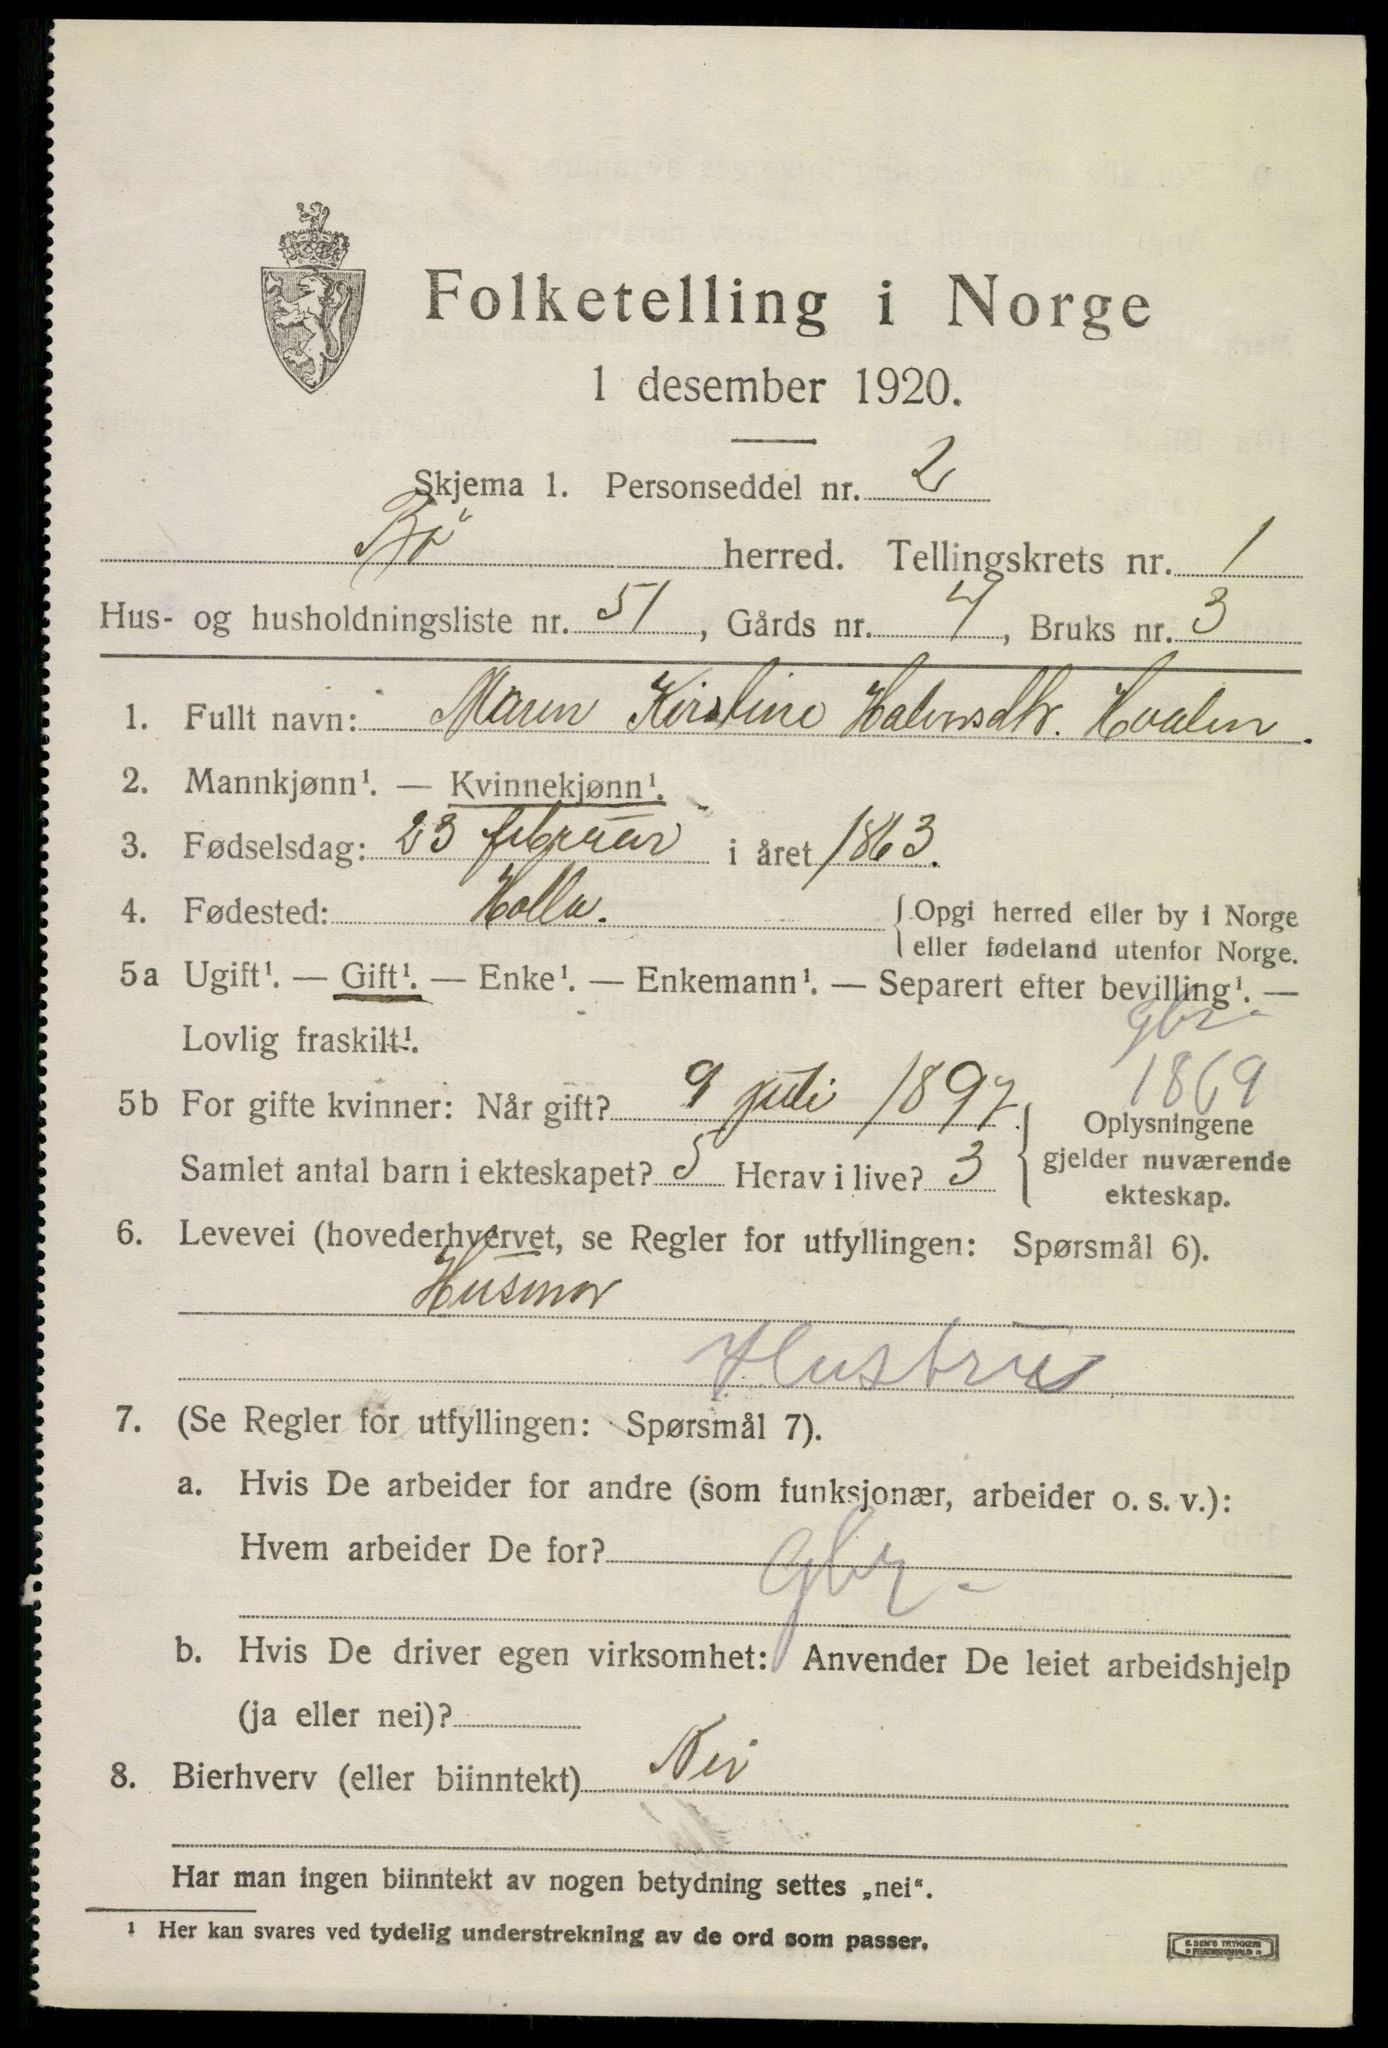 Folketelling i Norge
1 desember 1920.
Skjema 1. Personseddel nr. 2
Bö herred. Tellingskrets nr. 1
Hus- og husholdningsliste nr. 51, Gårds nr. 4, Bruks nr. 3
1. Fullt navn: Maren Kirstine Halvorsdtr. Hvalen.
2. Mannkjønn¹. — Kvinnekjønn¹.
3. Fødselsdag: 23 februar i året 1863.
4. Fødested: Holla. Opgi herred eller by i Norge
eller fødeland utenfor Norge.
5a Ugift¹. — Gift¹. — Enke¹. — Enkemann¹. — Separert efter bevilling¹. —
Lovlig fraskilt¹. gbr.
1869
5b For gifte kvinner: Når gift? 9 juli 1897. Oplysningene
Samlet antal barn i ekteskapet? 5 Herav i live? 3 gjelder nuværende
ekteskap.
6. Levevei (hovederhvervet, se Regler for utfyllingen: Spørsmål 6).
Husmor
Hustru
7. (Se Regler for utfyllingen: Spørsmål 7).
a. Hvis De arbeider for andre (som funksjonær, arbeider o. s. v.):
Hvem arbeider De for? gbr.
b. Hvis De driver egen virksomhet: Anvender De leiet arbeidshjelp
(ja eller nei)?
8. Bierhverv (eller biinntekt) Nei
Har man ingen biinntekt av nogen betydning settes „nei“.
¹ Her kan svares ved tydelig understrekning av de ord som passer.